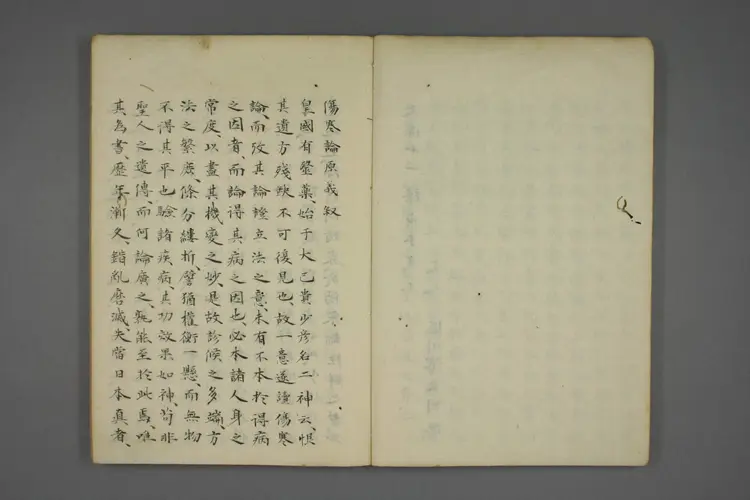 傷寒論原義叙
皇國有毉藥、始于大己貴少彦名二神云、惧
其遺方殘缺不可復見也、故一意遂讀傷寒
論、而攷其論證立法之意、未有不本於得病
之因者、而論得其病之因也、必本諸人身之
常度、以盡其機變之妙、是故診候之多端、方
法之繁蕪、條分縷析、譬猶權衡一懸、而無物
不得其平也、驗諸疾病、其功效果如神、苟非
聖人之遺傳、而何論廣之、孰能至於此焉、唯
其為書、歷年漸久、錯亂磨滅、失當日本真者、